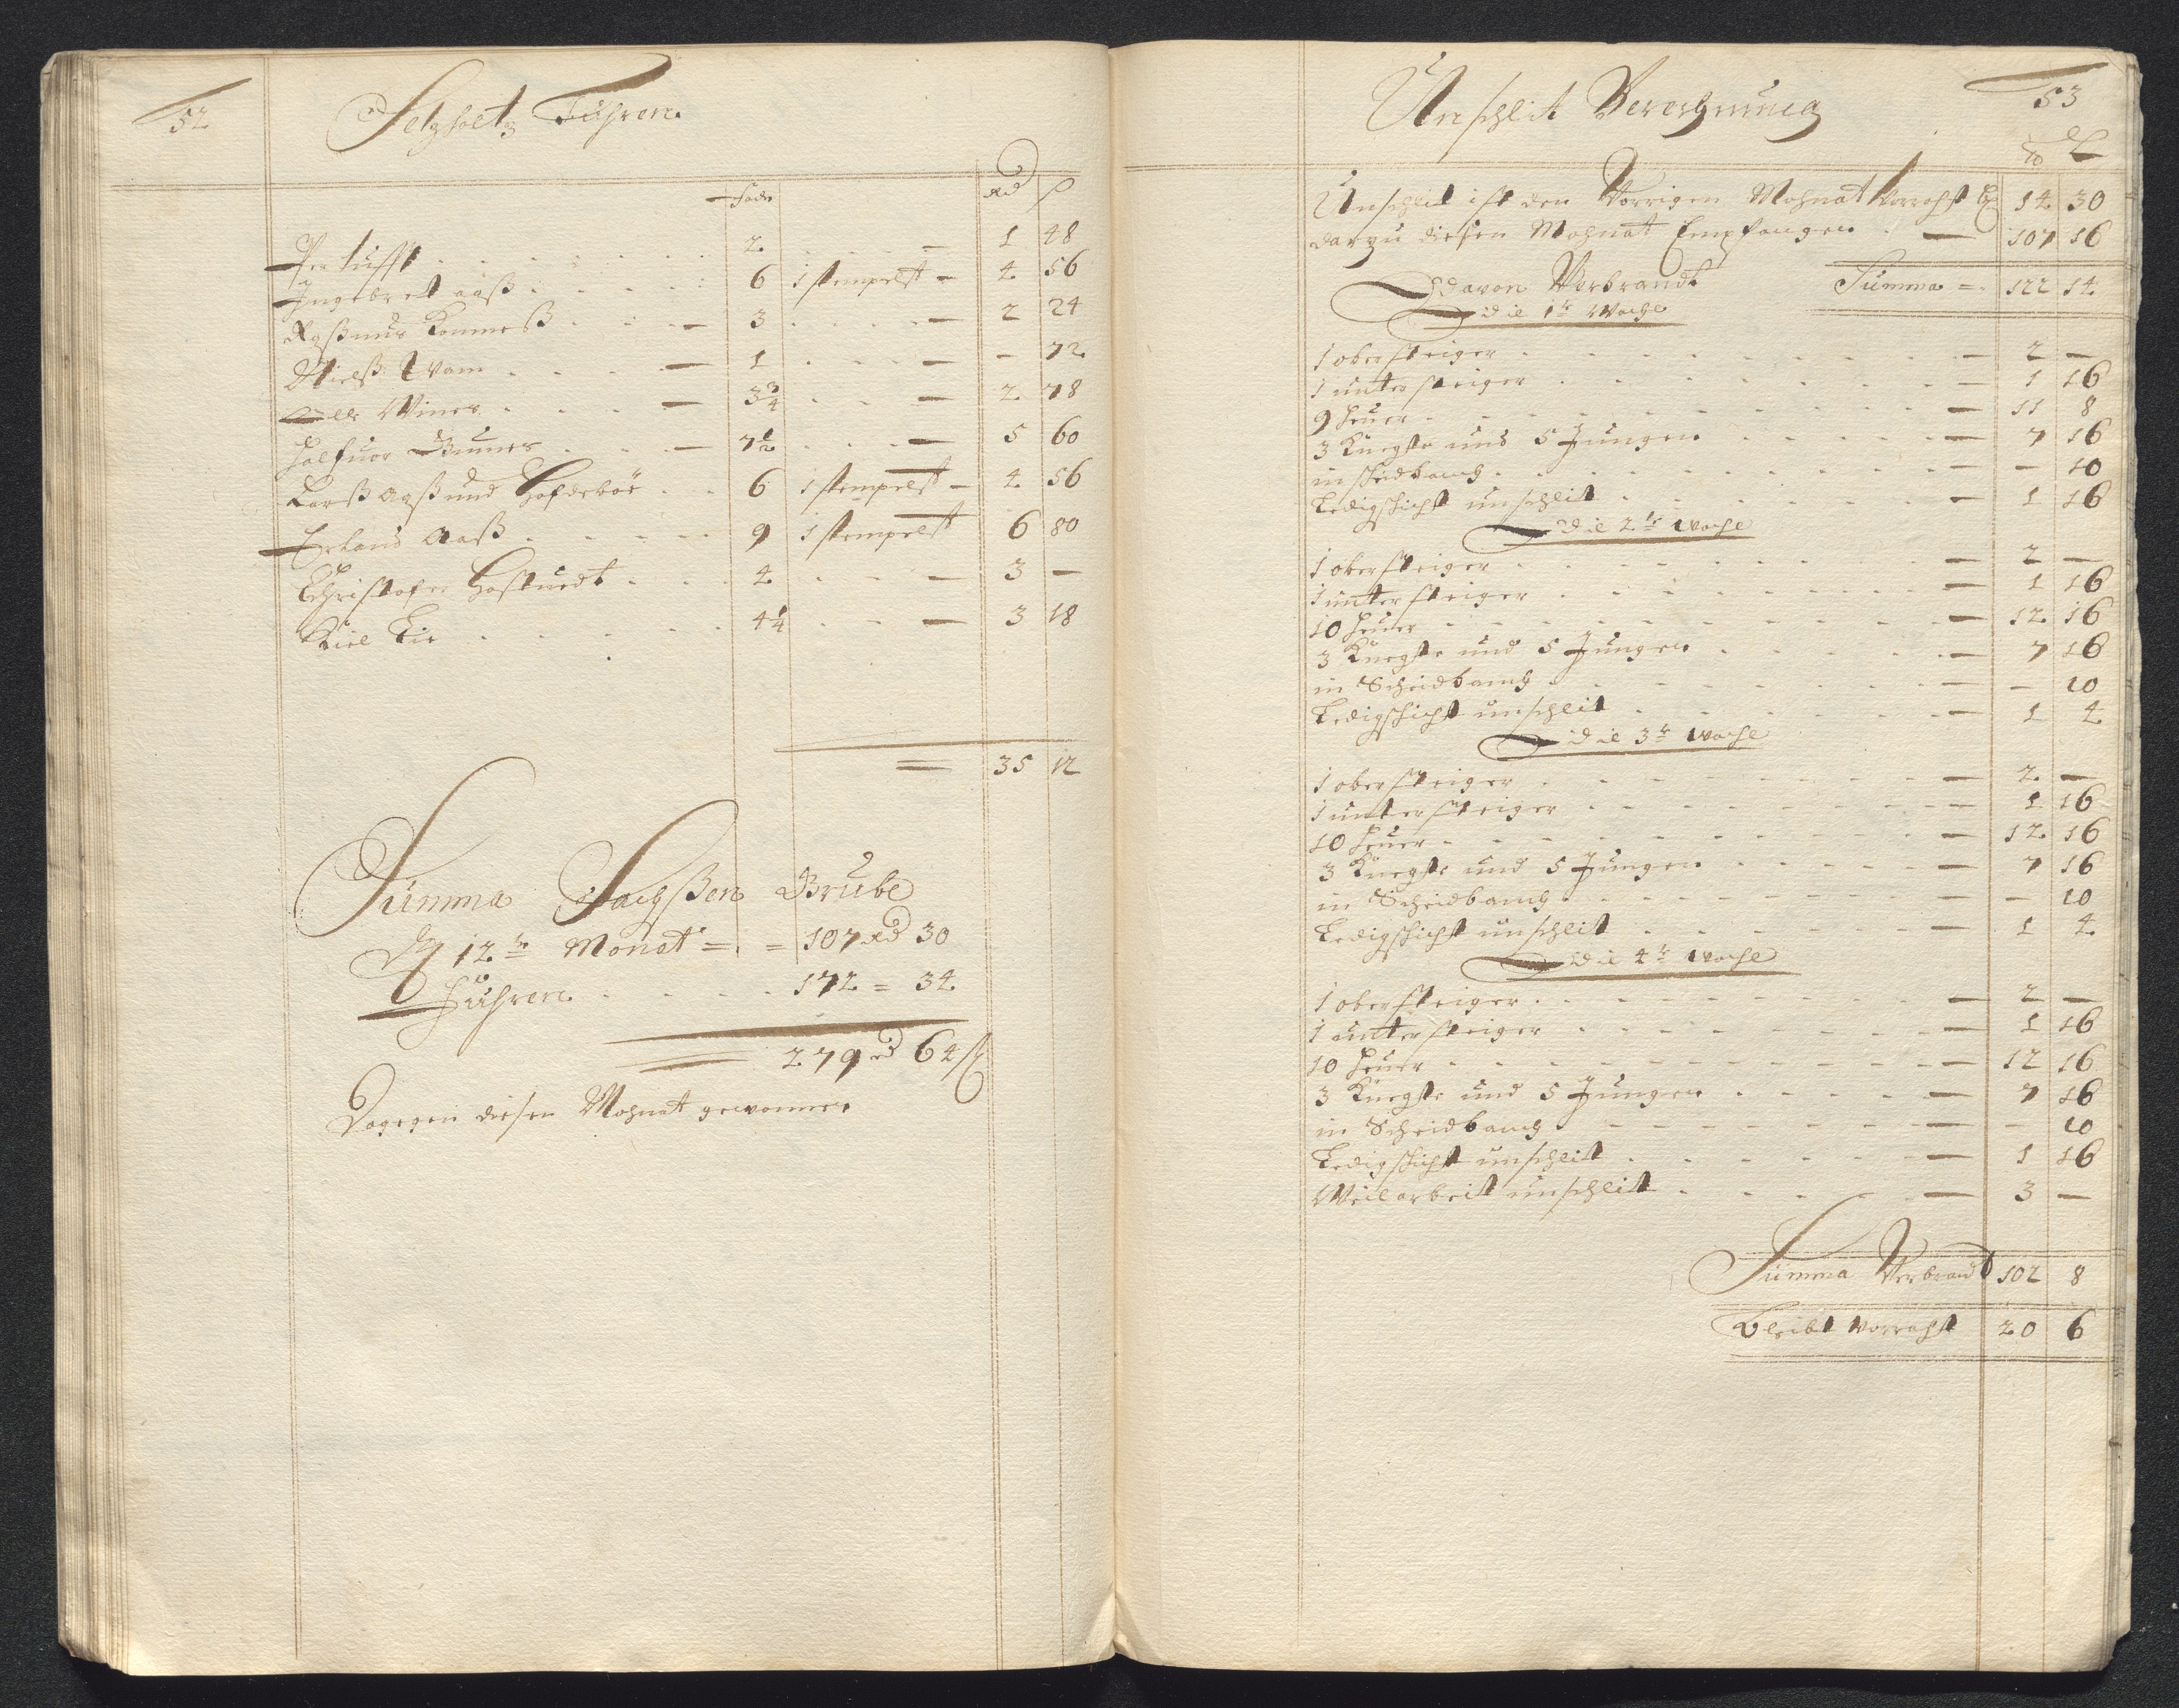 52
Setzholtz Fuhren
fadn Rd ß
Per tufft 2 — 1 48
Ingebret aaß 6 1 stempelst — 4 56
Raßmus Kommeß 3 — 2 24
Nielß Wam — 1 — — 72
Ole Winer — 3¾ — 2 78
Halfuor Gunner — 7½ — 5 60
Larß Aaß und Hofdebör 6 1 stempelst — 4 56
Erland Aaß 9 1 stempelst 6 80
Christofer Hostuedt 4 — 3 —
Kiel Lie 4¼ — 3 18
= 35 12
Summa Sachßen Grube
12te Monat = = 107 Rd 30
Fuhren 172 = 34
279 rd 64 ß
Dagegen diesen Mohnat gewonnen
53
Unschlit Berechnung
Unschlit ist den Vorrigen Mohnat Vorraht 14 30
darzu diesen Mohnat Empfangen — 107 16
Davon Verbrandt Summa = 122 14
die 1te Woche
1 obersteiger — 2 —
1 untersteiger — 1 16
9 Heuer — 11 8
3 Knegte und 5 Jungen — 7 16
in scheidbanch — — 10
Ledigschicht unschlit — 1 16
die 2te Woche
1 obersteiger — 2 —
1 untersteiger — 1 16
10 Heuer — 12 16
3 Knegte und 5 Jungen — 7 16
in Scheidbanch — — 10
Ledigschicht unschlit — 1 4
die 3te Woche
1 obersteiger — 2 —
1 untersteiger — 1 16
10 Heuer — 12 16
3 Knegte und 5 Jungen — 7 16
in Scheidbanch — — 10
Ledigschicht unschlit — 1 4
die 4te Woche
1 obersteiger — 2 —
1 untersteiger — 1 16
10 Heuer — 12 16
3 Knegte und 5 Jungen — 7 16
in Scheidbanch — — 10
Ledigschicht unschlit — 1 16
Weilarbeit unschlit — 3 —
Summa Verbrandt 102 8
Bleibt Vorraht 20 6